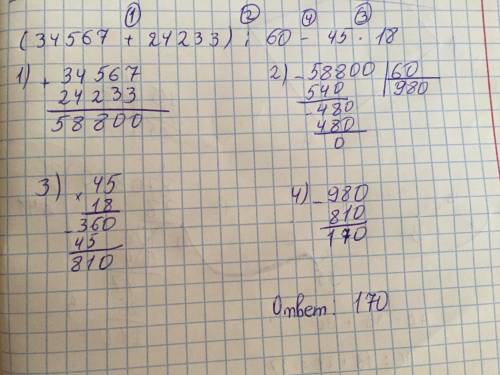 ① ② ④ ③
(34567 + 24233) : 60 - 45 · 18
1) + 34567
24233
58800
2) - 58800 | 60
540 980
- 480
480
0
3) × 45
18
- 360
45
810
4) - 980
810
170
Ответ. 170